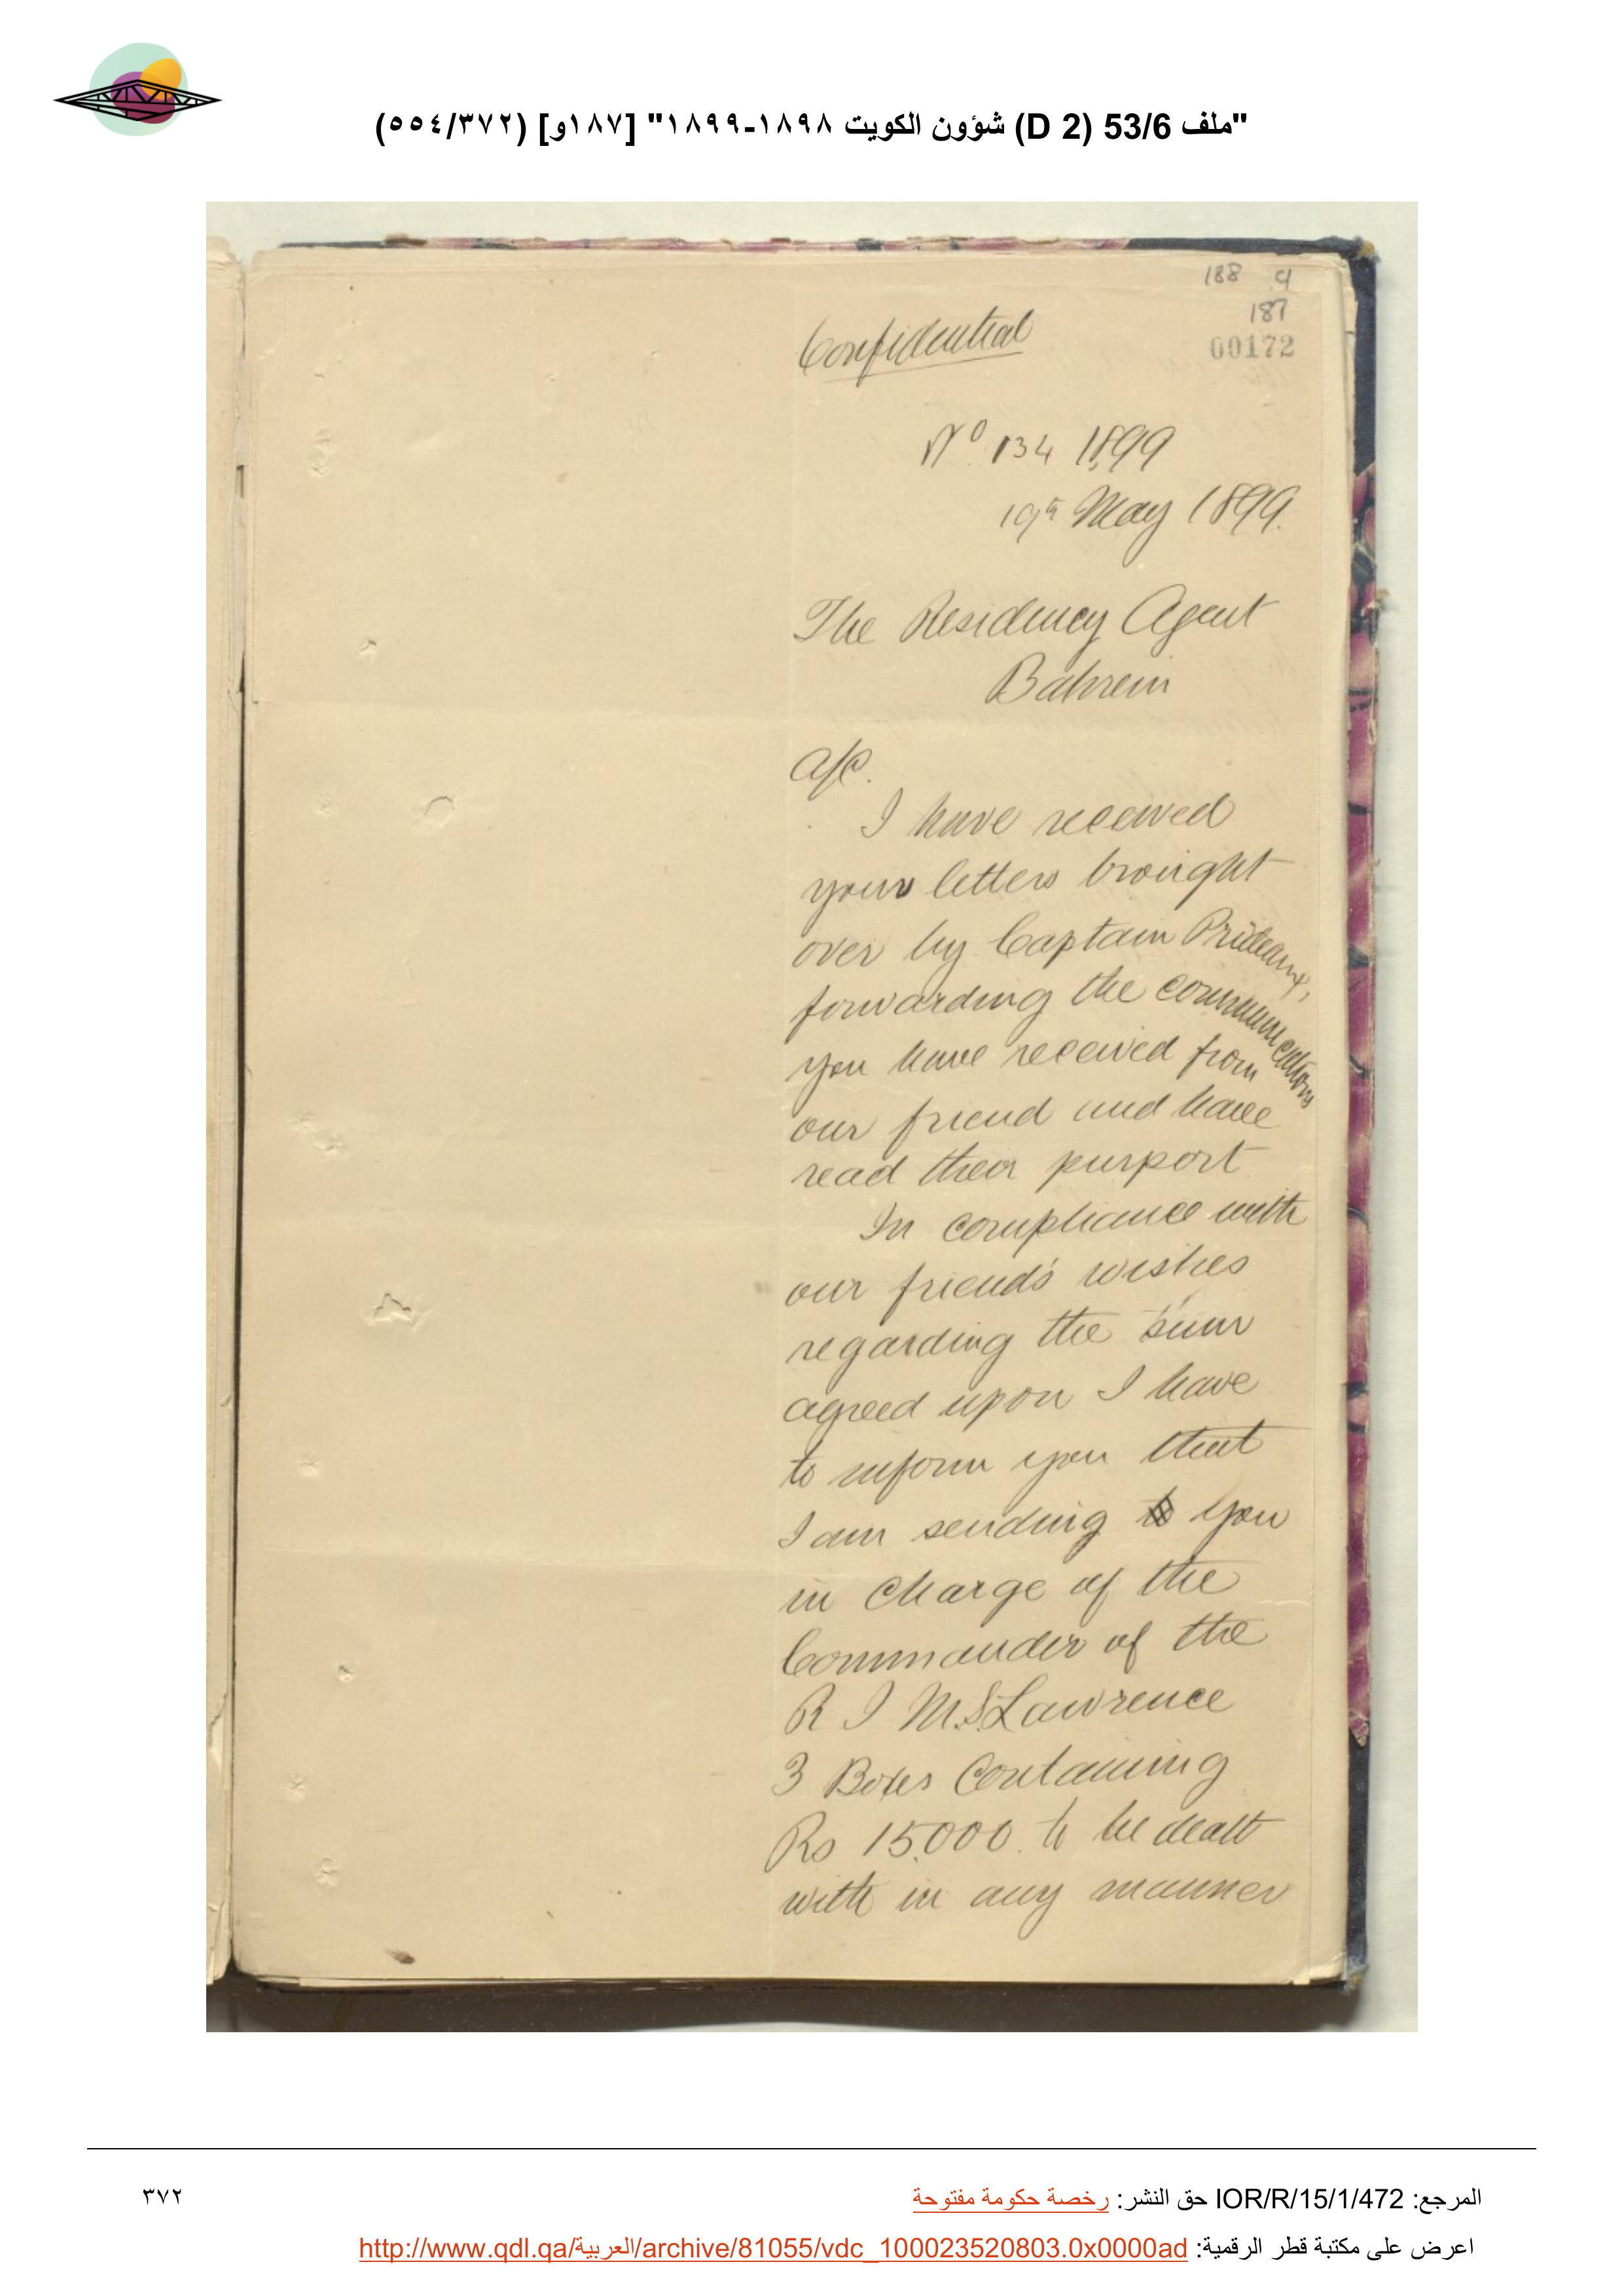 "ملف 53/6 (D 2) شؤون الكويت ١٨٩٨-١٨٩٩" [١٨٧و] (٥٥٤/٣٧٢)
188 9
187
00172
Confidential
No 134 1899
19th May 1899.
The Residency Agent
Bahrein
A/C.
I have received
your letters brought
over by Captain Prideaux,
forwarding the communications
you have received from
our friend and have
read their purport
In compliance with
our friend's wishes
regarding the sum
agreed upon I have
to inform you that
I am sending to you
in charge of the
Commander of the
R I M.S. Lawrence
3 Boxes Containing
Rs 15,000. to be dealt
with in any manner
المرجع: IOR/R/15/1/472 حق النشر: رخصة حكومة مفتوحة
٣٧٢
اعرض على مكتبة قطر الرقمية: http://www.qdl.qa/العربية/archive/81055/vdc_100023520803.0x0000ad